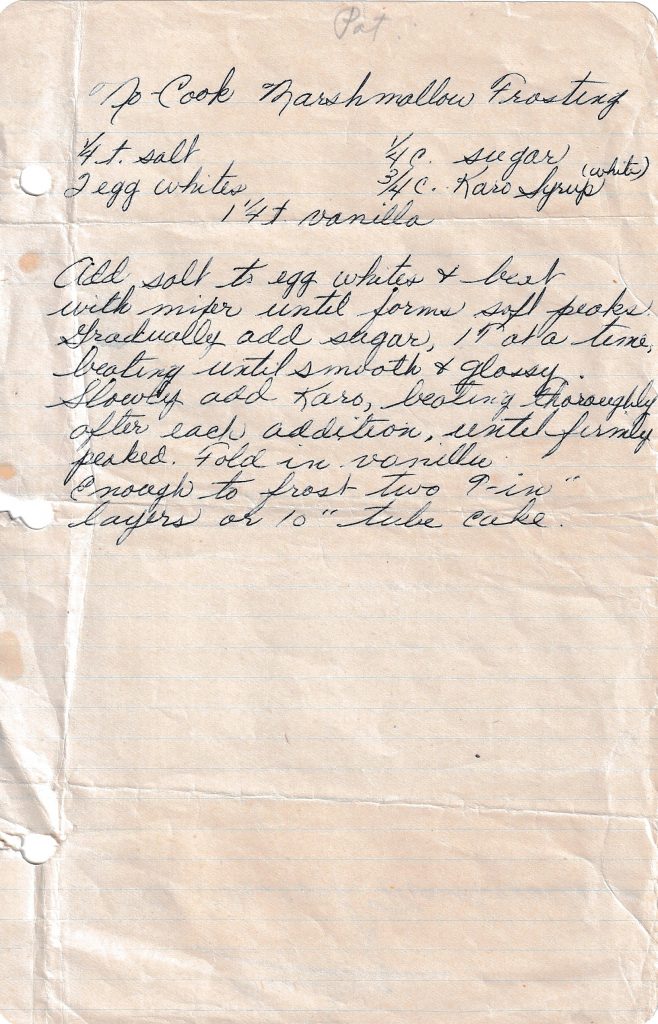 Pat.
No-Cook Marshmallow Frosting
1/4 t. salt 1/4 c. sugar
2 egg whites 3/4 c. Karo Syrup (white)
1 1/4 t vanilla
Add salt to egg whites & beat
with mixer until forms soft peaks.
Gradually add sugar, 1T at a time,
beating until smooth & glossy.
Slowly add Karo, beating thoroughly
after each addition, until firmly
peaked. Fold in vanilla.
Enough to frost two 9-in"
layers or 10" tube cake.